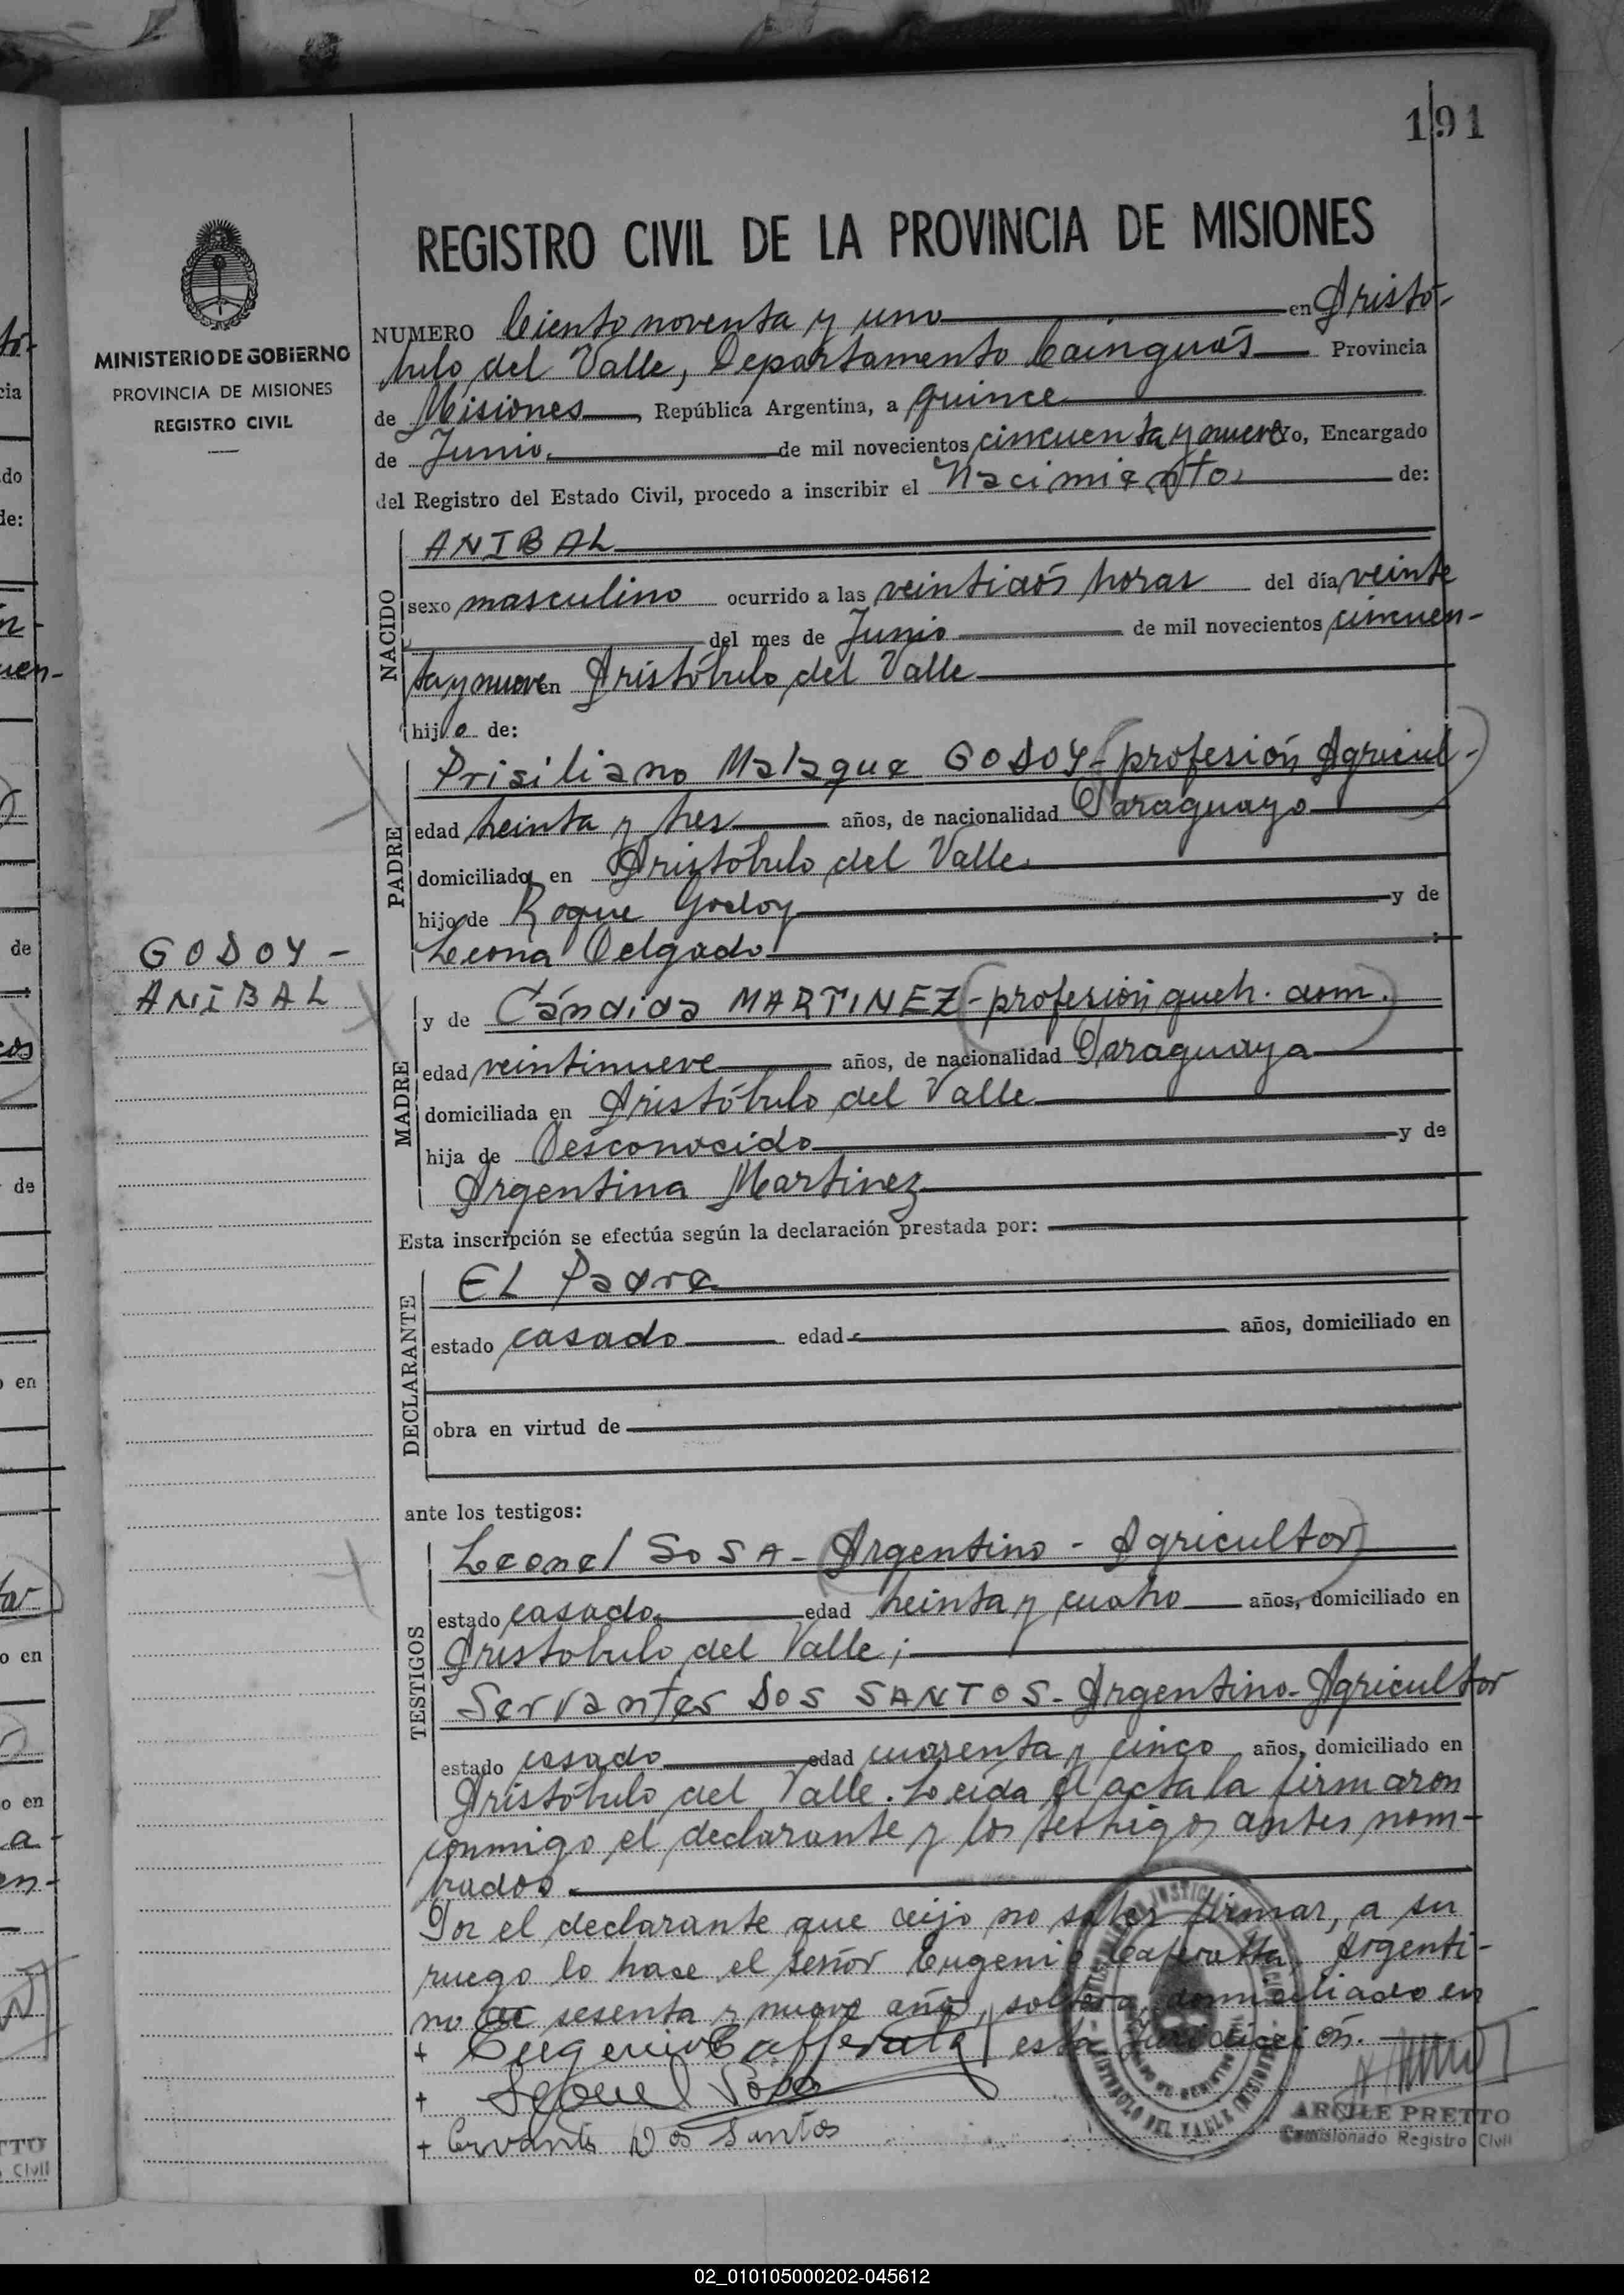 191
MINISTERIO DE GOBIERNO
PROVINCIA DE MISIONES
REGISTRO CIVIL
REGISTRO CIVIL DE LA PROVINCIA DE MISIONES
NUMERO Ciento noventa y uno en Aristó-
bulo del Valle, Departamento Cainguás Provincia
de Misiones, República Argentina, a quince
de Junio de mil novecientos cincuenta y nueve yo, Encargado
del Registro del Estado Civil, procedo a inscribir el Nacimiento de:
NACIDO
ANIBAL
sexo masculino ocurrido a las veintidós horas del día veinte
del mes de Junio de mil novecientos cincuen-
ta y nueve en Aristóbulo del Valle
hijo de:
PADRE
Prisiliano Malaque GODOY-(profesión Agricul-)
edad treinta y tres años, de nacionalidad Paraguayo
domiciliado en Aristóbulo del Valle
hijo de Roque Godoy y de
Leona Delgado
GODOY -
ANIBAL
MADRE
y de Cándida MARTINEZ-(profesión queh. dom.)
edad veintinueve años, de nacionalidad Paraguaya
domiciliada en Aristóbulo del Valle
hija de Desconocido y de
Argentina Martinez
Esta inscripción se efectúa según la declaración prestada por:
DECLARANTE
EL Padre
estado casado edad años, domiciliado en
obra en virtud de
ante los testigos:
TESTIGOS
Leonel SOSA-(Argentino - Agricultor)
estado casado edad treinta y cuatro años, domiciliado en
Aristobulo del Valle;
Servantes DOS SANTOS-Argentino-Agricultor
estado casado edad cuarenta y cinco años, domiciliado en
Aristóbulo del Valle. Leída el acta la firmaron
conmigo el declarante y los testigos antes nom-
brados.
Por el declarante que dijo no saber firmar, a su
ruego lo hace el señor Eugenio Caferatta, Argenti-
no de sesenta y nueve años, soltero, domiciliado en
esta Jurisdicción.
+ Eugenio Cafferata
+ Leonel Sosa
+ Cervantes Dos Santos
ARCILE PRETTO
Comisionado Registro Civil
02_010105000202-045612